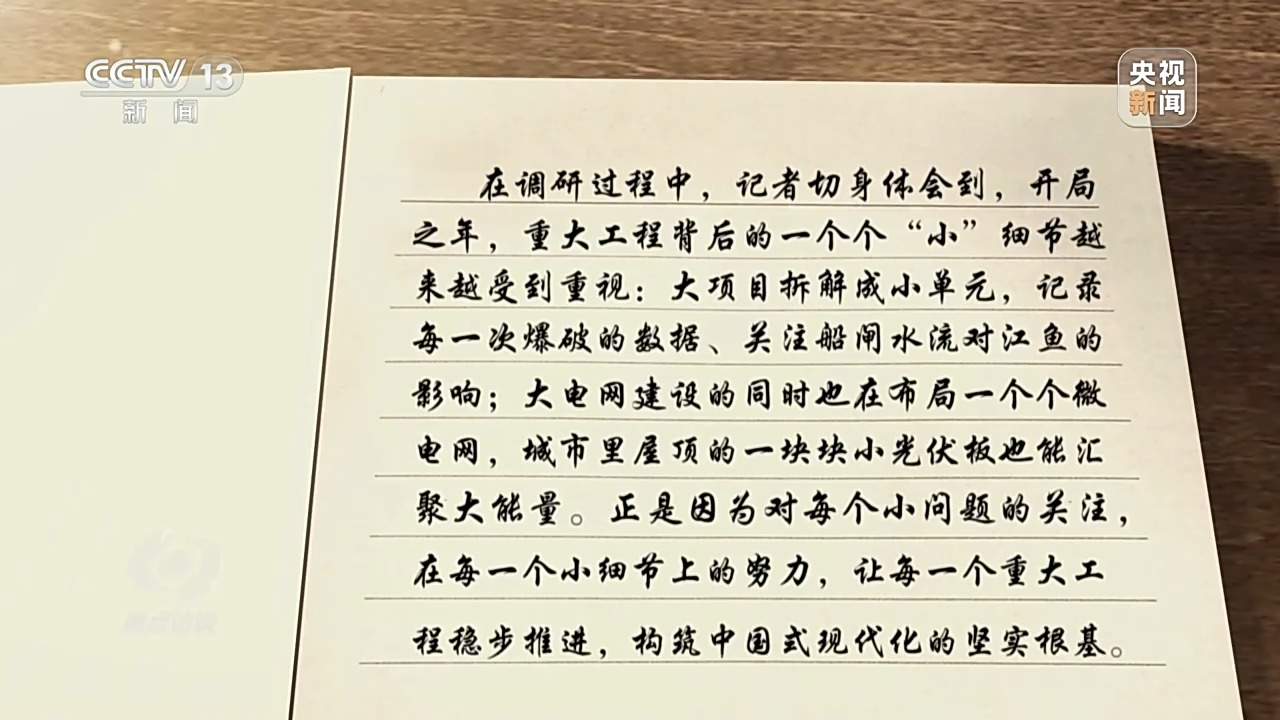 CCTV 13
新闻
央视
新闻
在调研过程中，记者切身体会到，开局
之年，重大工程背后的一个个“小”细节越
来越受到重视：大项目拆解成小单元，记录
每一次爆破的数据、关注船闸水流对江鱼的
影响；大电网建设的同时也在布局一个个微
电网，城市里屋顶的一块块小光伏板也能汇
聚大能量。正是因为对每个小问题的关注，
在每一个小细节上的努力，让每一个重大工
程稳步推进，构筑中国式现代化的坚实根基。
焦点访谈